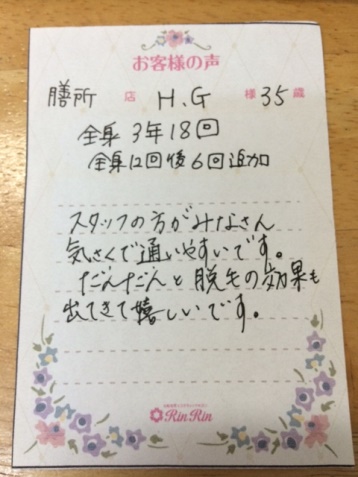 お客様の声
膳所 店 H.G 様 35 歳
全身 3年18回
全身12回後6回追加
スタッフの方がみなさん
気さくで通いやすいです。
だんだんと脱毛の効果も
出てきて嬉しいです。
RinRin